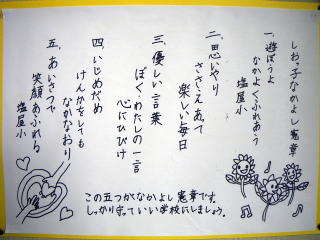 しおっ子なかよし憲章
一、遊ぼうよ
なかよくふれあう
塩屋小
二、思いやり
ささえあって
楽しい毎日
三、優しい言葉
ぼく・わたしの一言
心にひびけ
四、いじめだめ
けんかをしても
なかなおり
五、あいさつで
笑顔あふれる
塩屋小
この五つがなかよし憲章です。
しっかり守っていい学校にしましょう。